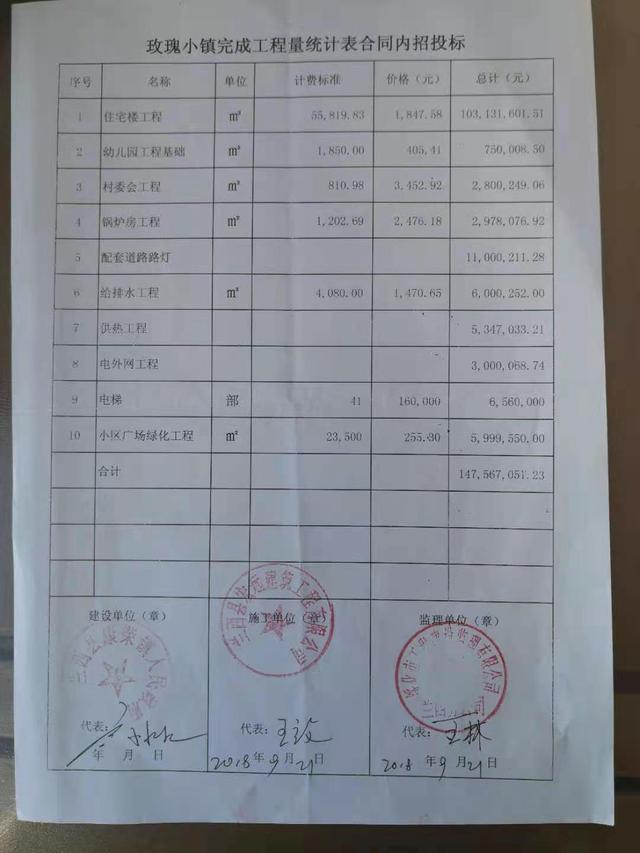 玫瑰小镇完成工程量统计表合同内招投标
序号 名称 单位 计费标准 价格（元） 总计（元）
1 住宅楼工程 ㎡ 55,819.83 1,847.58 103,131,601.51
2 幼儿园工程基础 ㎡ 1,850.00 405.41 750,008.50
3 村委会工程 ㎡ 810.98 3,452.92 2,800,249.06
4 锅炉房工程 ㎡ 1,202.69 2,476.18 2,978,076.92
5 配套道路路灯 11,000,211.28
6 给排水工程 ㎡ 4,080.00 1,470.65 6,000,252.00
7 供热工程 5,347,033.21
8 电外网工程 3,000,068.74
9 电梯 部 41 160,000 6,560,000
10 小区广场绿化工程 ㎡ 23,500 255.30 5,999,550.00
合计 147,567,051.23
建设单位（章） 施工单位（章） 监理单位（章）
兰西县康荣镇人民政府
兰西县宏远建筑工程有限公司
监理有限公司
兰西分公司
代表：
年 月 日
代表：王
2018年9月21日
代表：王林
2018年9月21日